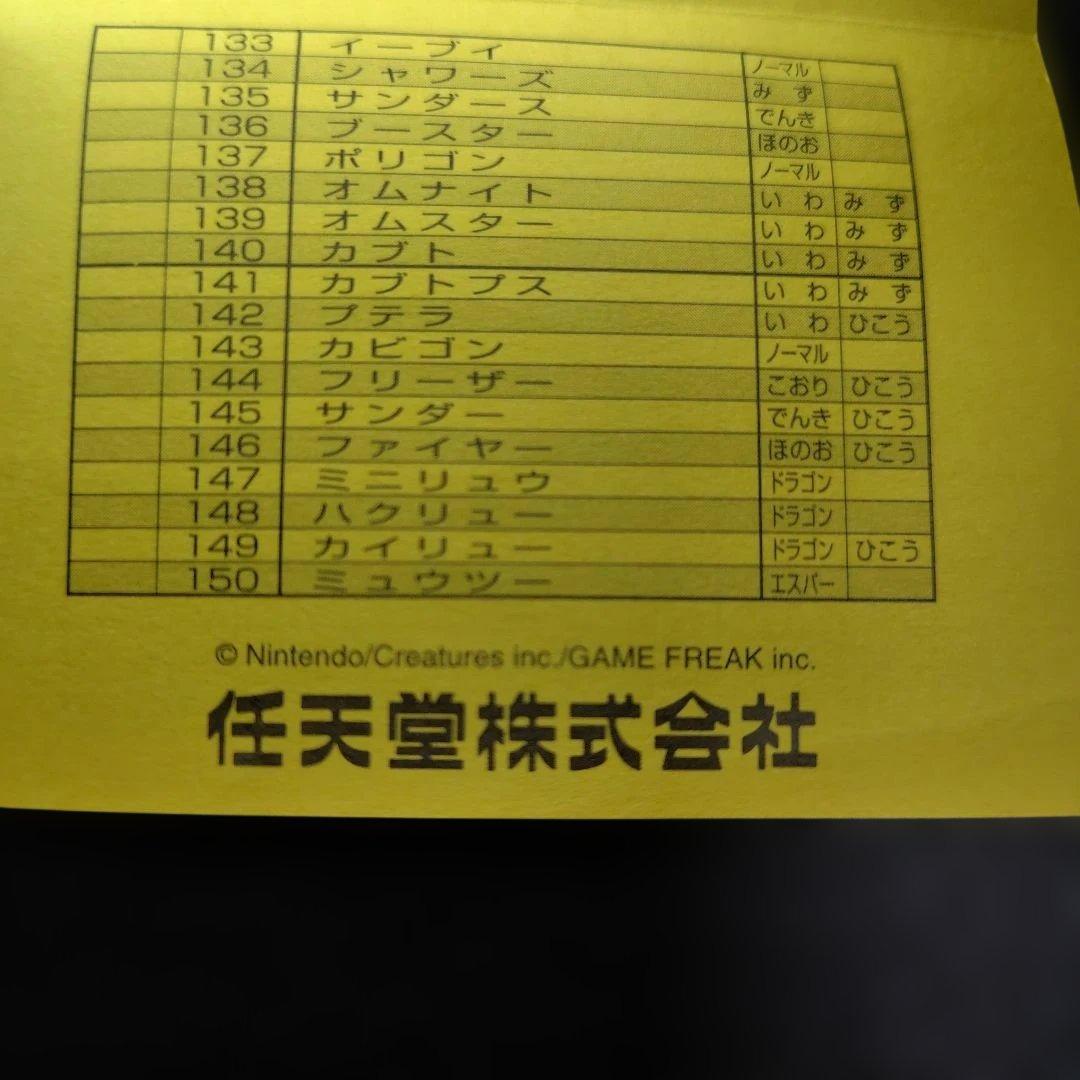 133 イーブイ ノーマル
134 シャワーズ みず
135 サンダース でんき
136 ブースター ほのお
137 ポリゴン ノーマル
138 オムナイト いわ みず
139 オムスター いわ みず
140 カブト いわ みず
141 カブトプス いわ みず
142 プテラ いわ ひこう
143 カビゴン ノーマル
144 フリーザー こおり ひこう
145 サンダー でんき ひこう
146 ファイヤー ほのお ひこう
147 ミニリュウ ドラゴン
148 ハクリュー ドラゴン
149 カイリュー ドラゴン ひこう
150 ミュウツー エスパー
© Nintendo/Creatures inc./GAME FREAK inc.
任天堂株式会社